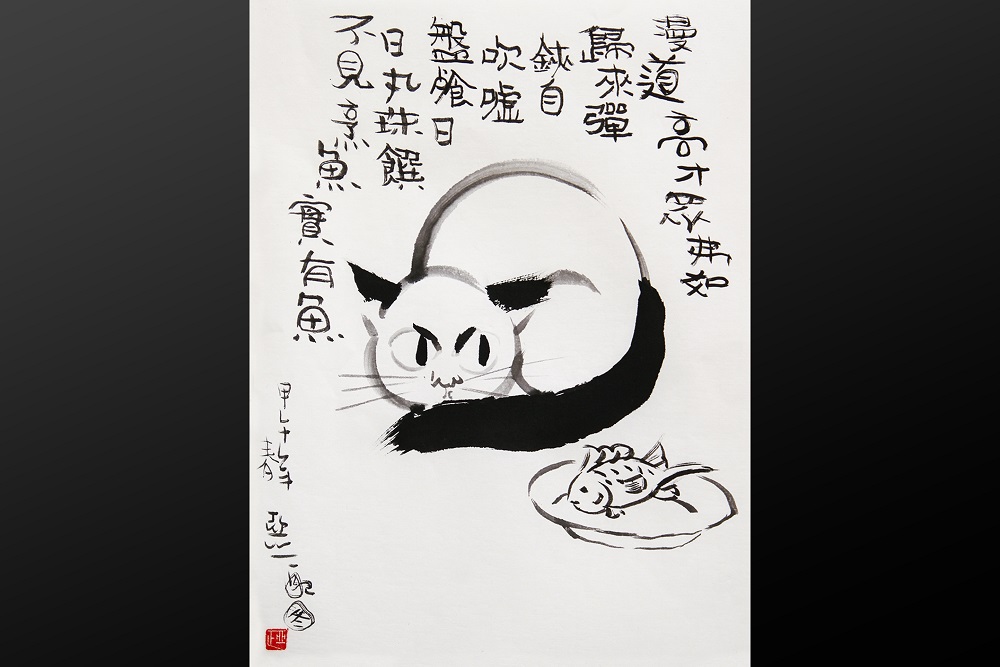 漫道高才眾弗如
歸來彈
鋏自
吹噓
盤飧日
日丸珠饌
不見烹魚實有魚
年春
配图